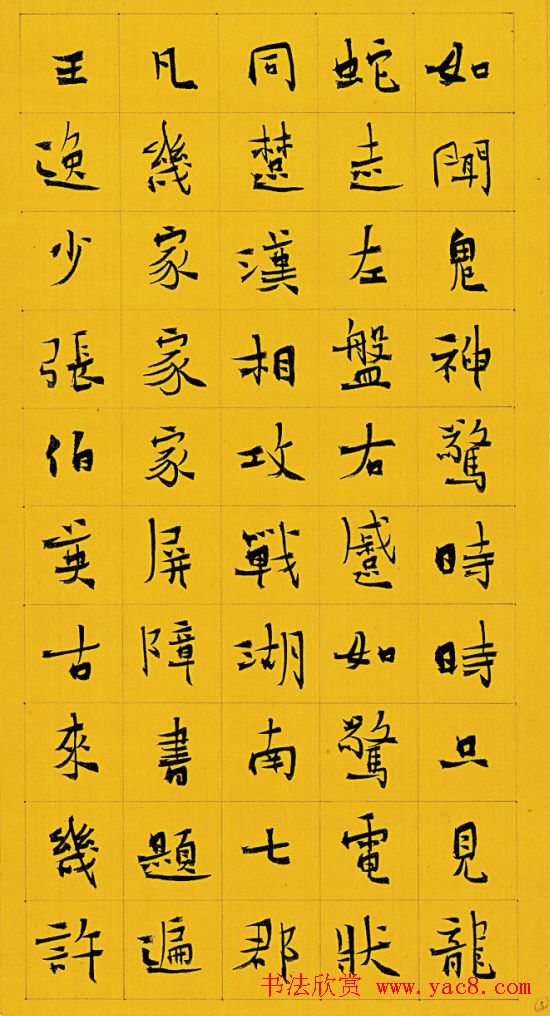 如聞鬼神驚時時只見龍
蛇走左盤右蹙如驚電狀
同楚漢相攻戰湖南七郡
凡幾家家家屏障書題遍
王逸少張伯英古來幾許
书法欣赏 www.yac8.com